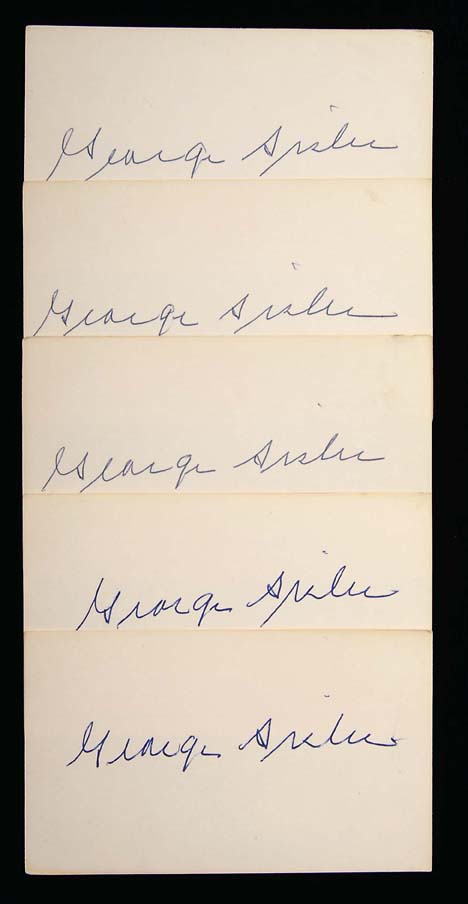 George Sisler
George Sisler
George Sisler
George Sisler
George Sisler